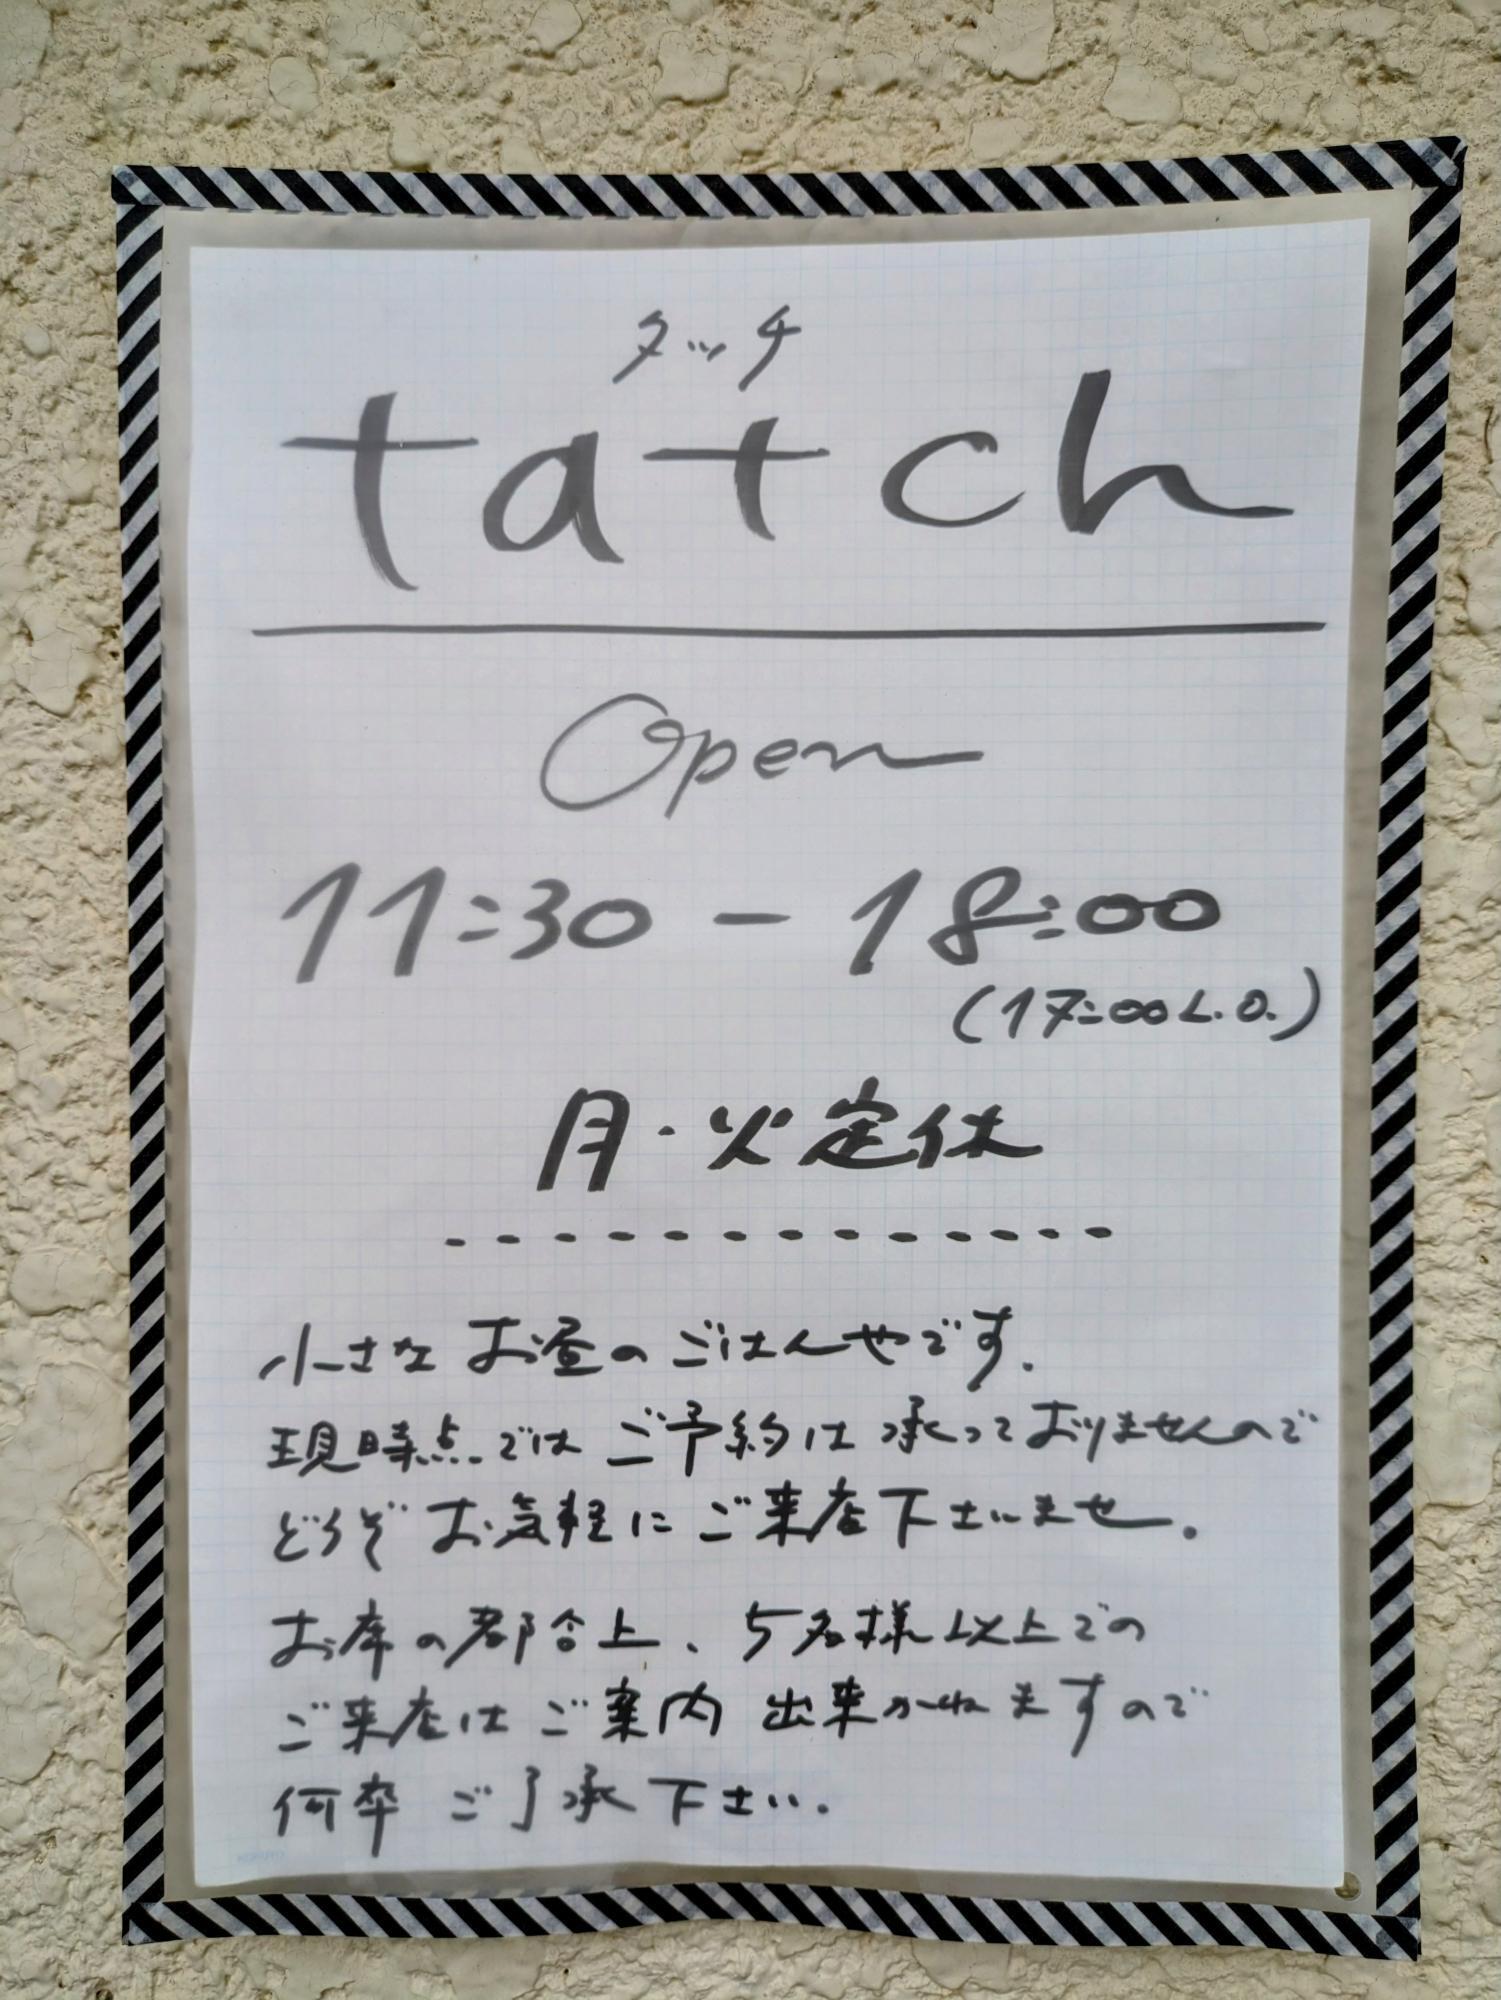 タッチ
tatch
Open
11:30 - 18:00
(17:00 L.O.)
月・火定休
小さなお昼のごはんやです.
現時点ではご予約は承っておりませんので
どうぞお気軽にご来店下さいませ。
お席の都合上、5名様以上での
ご来店はご案内出来かねますので
何卒ご了承下さい.